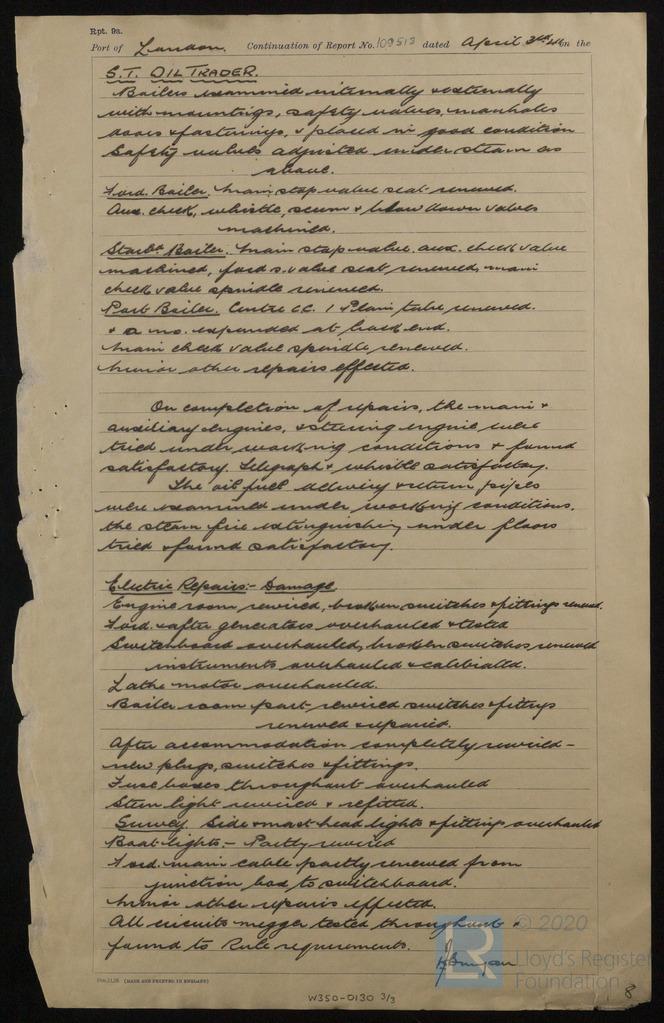 Rpt. 9a.
Port of London. Continuation of Report No. 109513 dated April 3rd 46 on the
S.T. OIL TRADER.
Boilers examined internally & externally
with mountings, safety valves, manholes
doors & fastenings, & placed in good condition
Safety valves adjusted under steam as
above.
Ford. Boiler. Main stop valve seat renewed.
Aux. check, whistle, scum & blow down valves
machined.
Starbd. Boiler. Main stop valve. aux. check valve
machined, ford s. valve seat renewed, main
check valve spindle renewed.
Port Boiler. Centre CC. 1 Plain tube renewed.
& a no. expanded at back end.
Main check valve spindle renewed.
Minor other repairs effected.
On completion of repairs, the main &
auxiliary engines, & steering engine were
tried under working conditions & found
satisfactory. Telegraph & whistle satisfactory.
The oil fuel delivery & return pipes
were examined under working conditions.
the steam fire extinguishing under floors
tried & found satisfactory.
Electric Repairs:- Damage
Engine room rewired, broken switches & fittings renewed.
Ford. & after generators overhauled & tested
Switchboard overhauled, broken switches renewed
instruments overhauled & calibrated.
Lathe motor overhauled.
Boiler room part rewired switches & fittings
renewed & repaired.
After accommodation completely rewired -
new plugs, switches & fittings.
Fuse boxes throughout overhauled
Stern light rewired & refitted.
Survey Side & mast head lights & fittings overhauled
Boat lights:- Partly rewired
Ford. main cable partly renewed from
junction box to switchboard.
Minor other repairs effected.
All circuits megger tested throughout &
found to Rule requirements.
© 2020
Lloyd's Register
Foundation
LR
(MADE AND PRINTED IN ENGLAND)
W350-0130 3/3
8